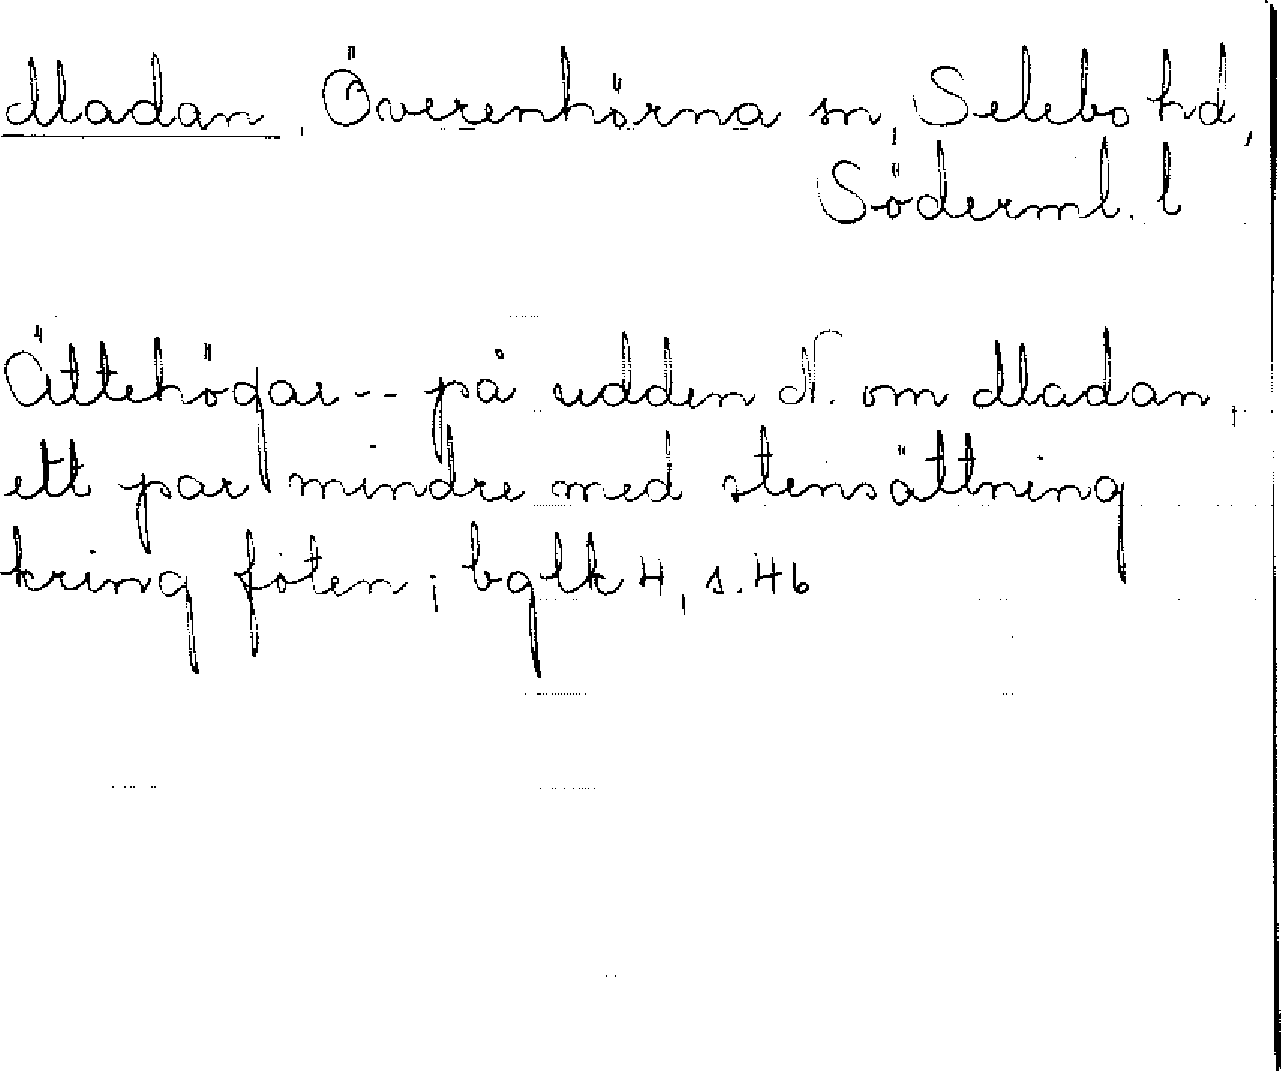 Madan, Överenhörna sn, Selebo hd,
Söderml. l
Ättehögar -- på udden N. om Madan,
ett par mindre med stensättning
kring foten; bglk 4, s. 46